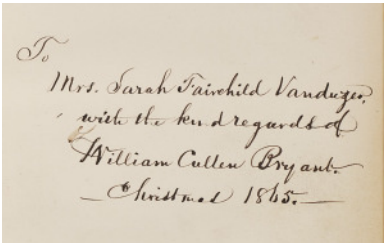 To
Mrs. Sarah Fairchild Vanduzer,
with the kind regards of
William Cullen Bryant.
Christmas 1865.